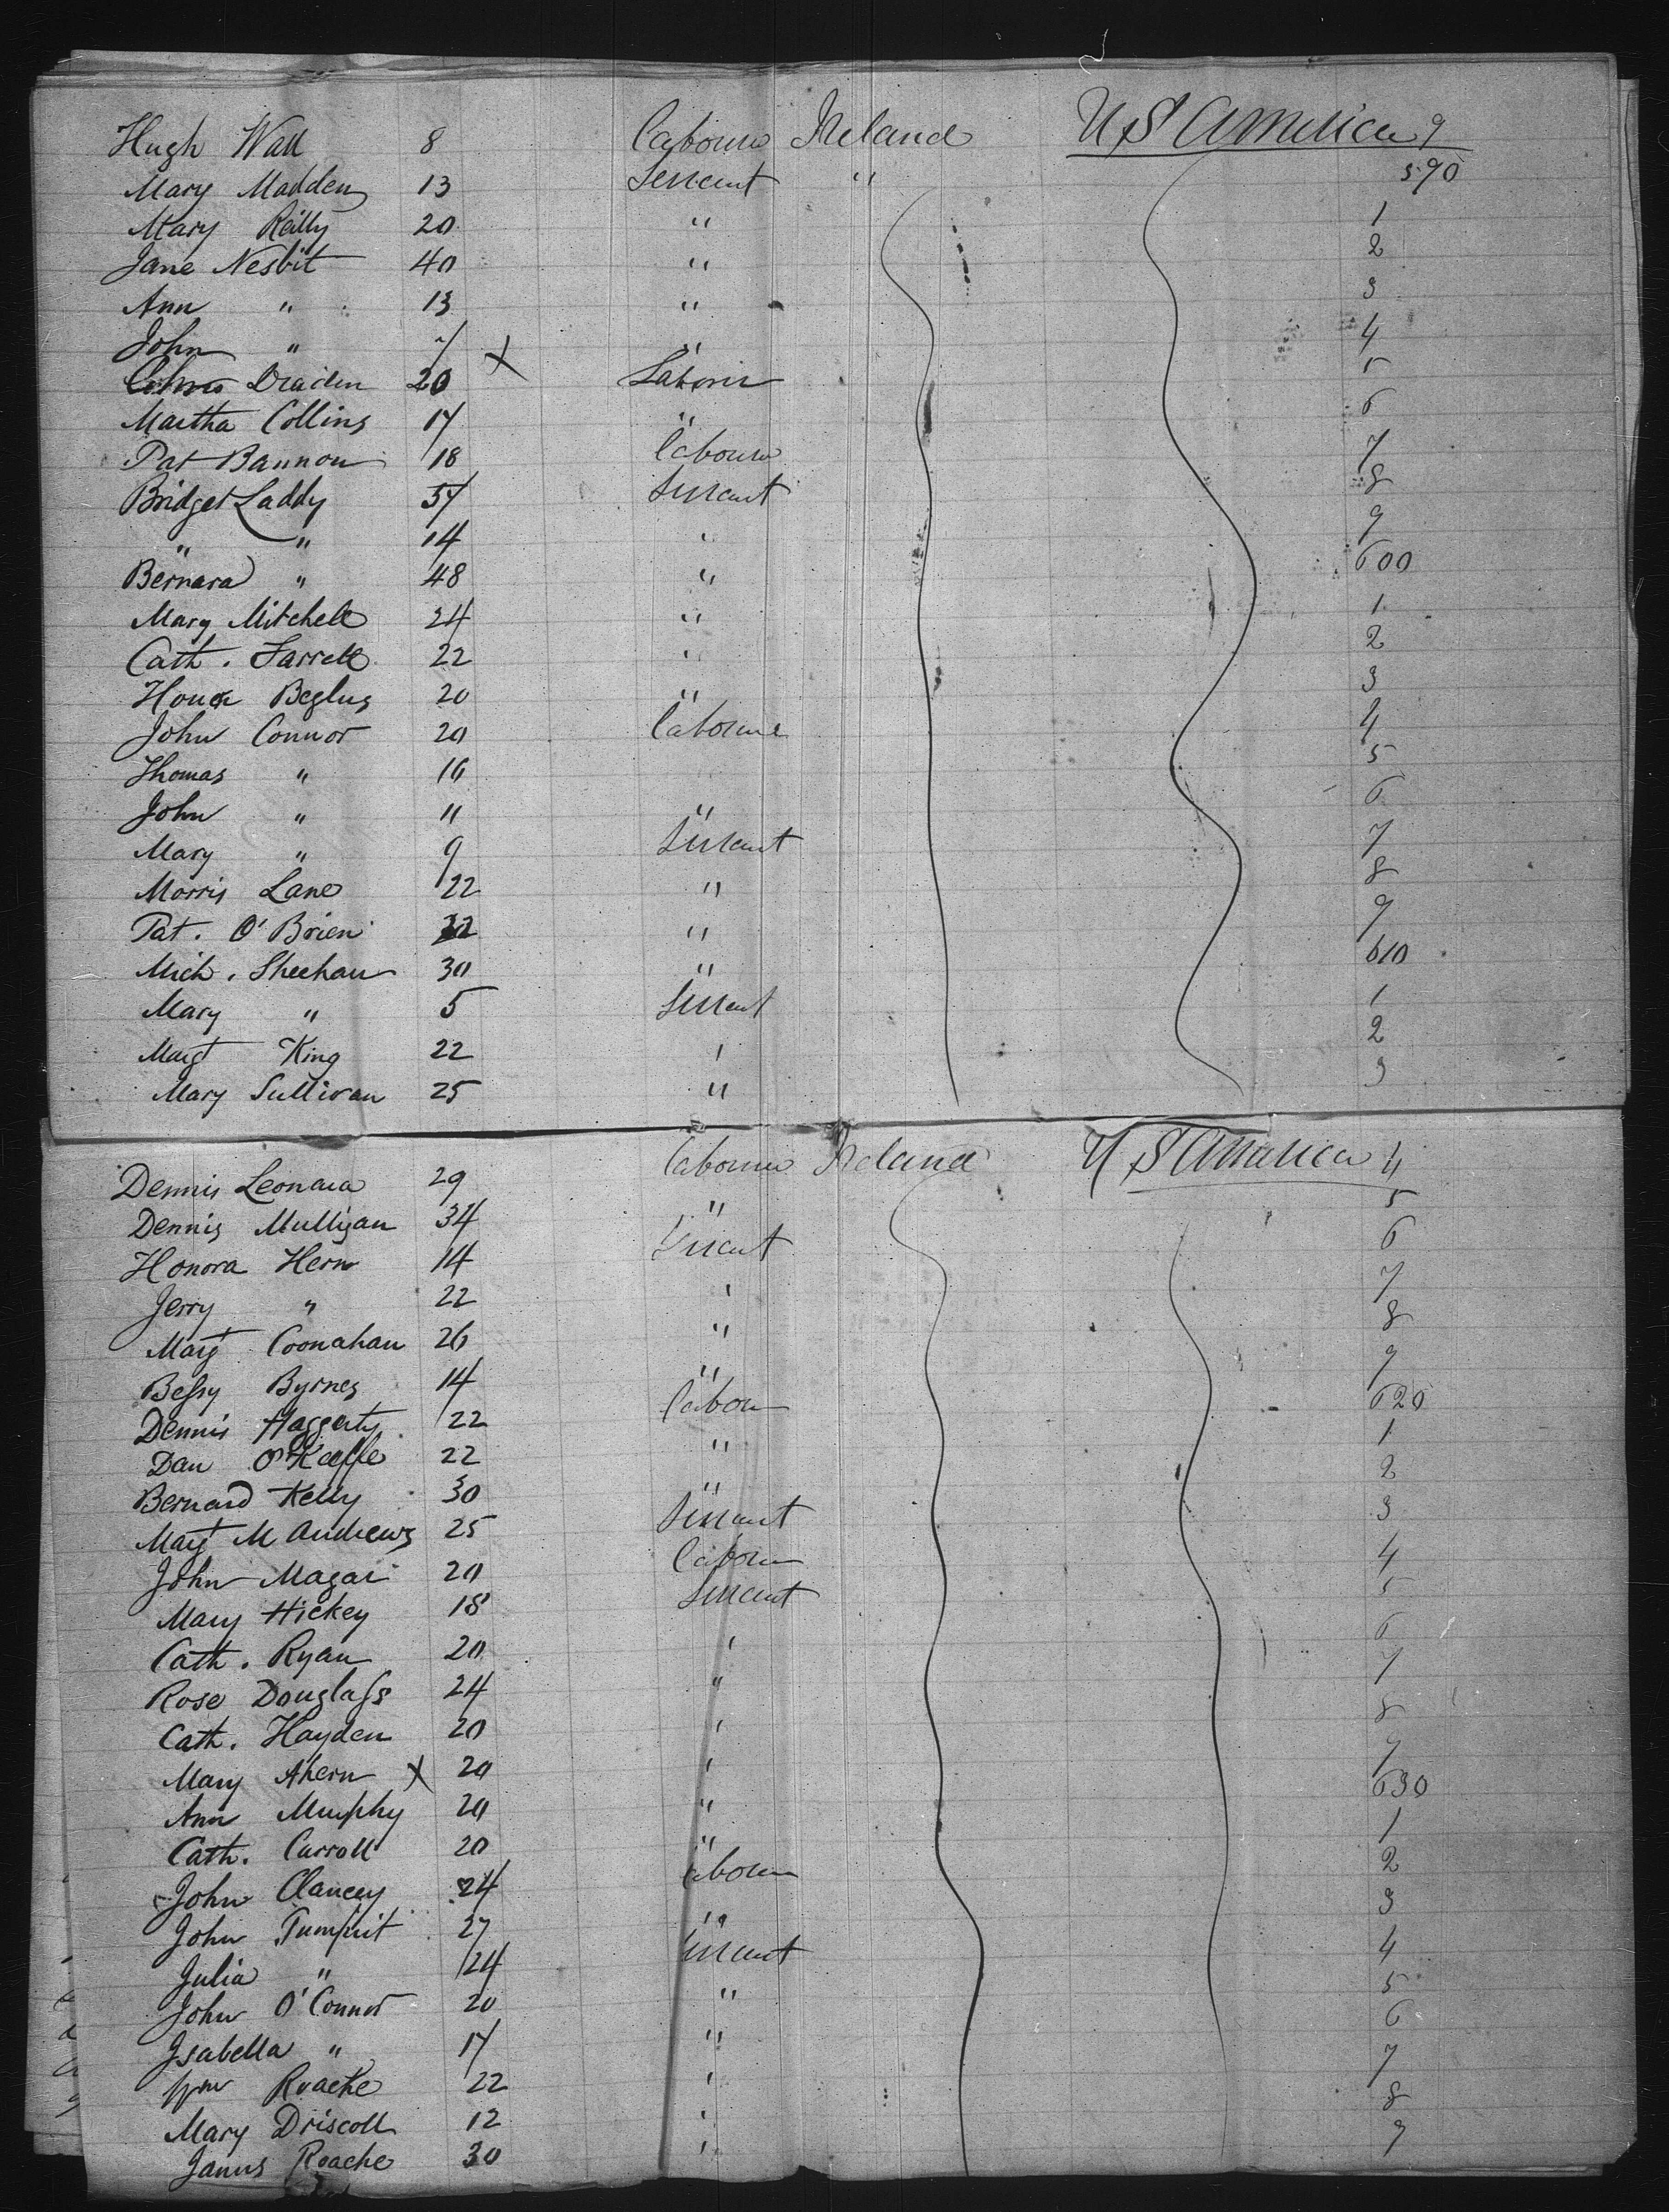 Hugh Wall 8 Labourer Ireland U S America 9
Mary Madden 13 Servant " 590
Mary Reilly 20 " 1
Jane Nesbit 40 " 2
Ann " 13 " 3
John " 7 " 4
20 X Labourer 5
Martha Collins 17 " 6
Pat Bannon 18 Labourer 7
Bridget Laddy 57 Servant 8
" " 14 " 9
Bernard " 48 " 600
Mary Mitchell 24 " 1
Cath. Farrell 22 " 2
Honor 20 " 3
John Connor 20 Labourer 4
Thomas " 16 5
John " 11 " 6
Mary " 9 Servant 7
Morris Lane 22 " 8
Pat. O'Brien " 9
Mich. Sheehan 30 " 610
Mary " 5 Servant 1
Margt King 22 " 2
Mary Sullivan 25 " 3
Dennis Leonard 29 Labourer Ireland U S America 4
Dennis Mulligan 34 " 5
Honora Hern 14 Servant 6
Jerry " 22 " 7
Margt Coonahan 26 " 8
Bessy Byrnes 14 " 9
Dennis Haggerty 22 Labour 620
Dan O'Keeffe 22 " 1
Bernard Kelly 30 " 2
Margt McAndrews 25 Servant 3
John Magar 20 Labour 4
Mary Hickey 18 Servant 5
Cath. Ryan 20 " 6
Rose Douglass 24 " 7
Cath. Hayden 20 " 8
Mary Ahern X 20 " 9
Ann Murphy 20 " 630
Cath. Carroll 20 " 1
John Clancey 24 Labour 2
John 27 " 3
Julia " 24 Servant 4
John O'Connor 20 " 5
Isabella " 17 " 6
Wm Roache 22 " 7
Mary Driscoll 12 " 8
James Roache 30 " 9